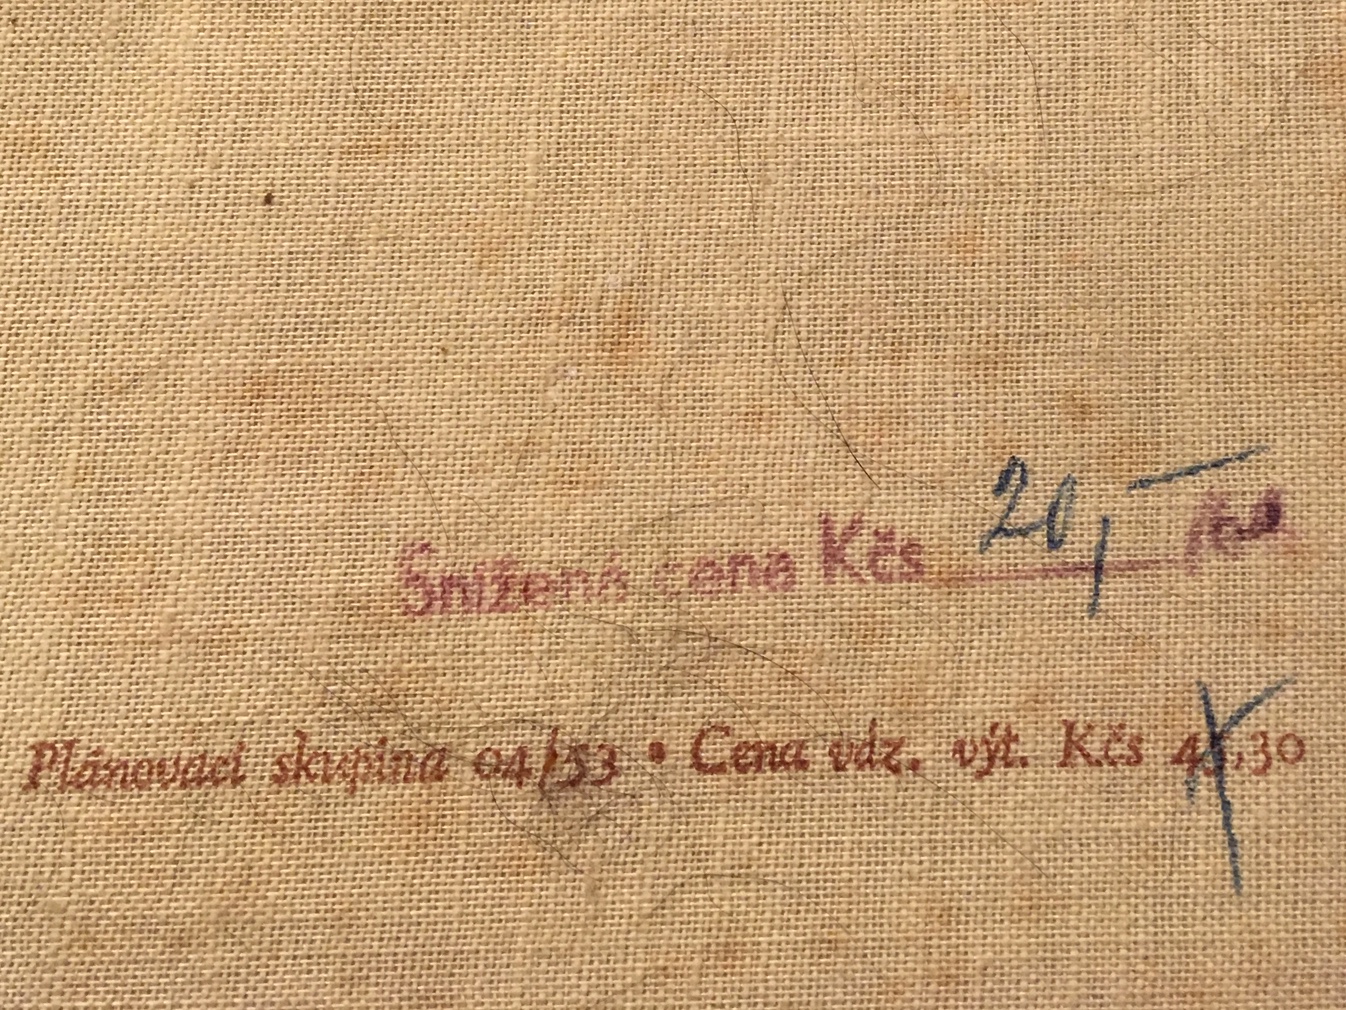 Snížená cena Kčs 20,—
Plánovací skupina 04/53 • Cena váz. výt. Kčs 45,30